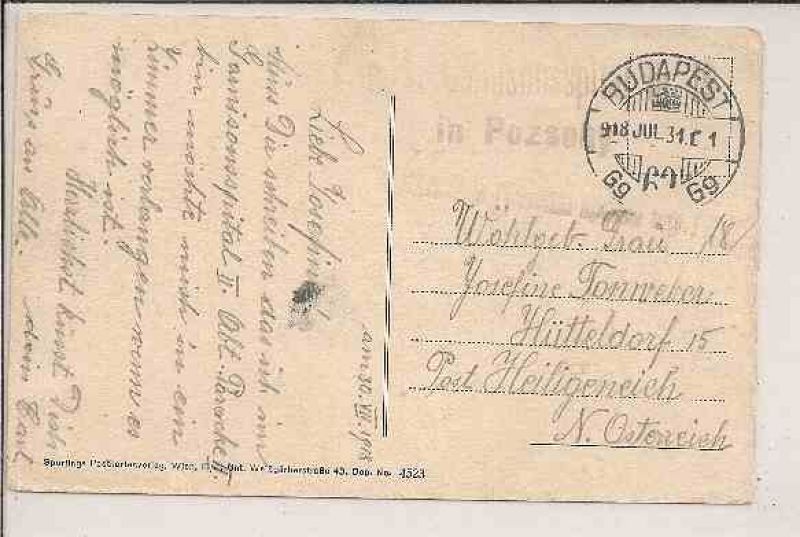 am 30. VII. 1918
Liebe Josefine!
Muss Dir schreiben das ich im
Garnisonsspital II Abt. Baracke
bin möchte mich in ein
Zimmer verlangen wenn es
möglich ist.
Herzlichst küsst Dich
Grüss an Alle. dein Carl
in Pozsony
BUDAPEST
918 JUL. 31.
69
G9 G9
Wohlgeb. Frau 18
Josefine Tonweber
Hütteldorf 15
Post Heiligeneich
N. Österreich
Sperlings Postkartenverlag, Wien, III., Unt. Weißgärberstraße 43, Dep. No. 1523